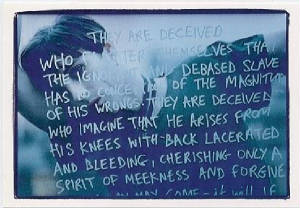 THEY ARE DECEIVED
WHO THEMSELVES THAT
THE DEBASED SLAVE
HAS NO OF THE MAGNITU
OF HIS WRONGS. THEY ARE DECEIVED
WHO IMAGINE THAT HE ARISES FROM
HIS KNEES WITH BACK LACERATED
AND BLEEDING, CHERISHING ONLY A
SPIRIT OF MEEKNESS AND FORGIVE
MAY COME - it will IF